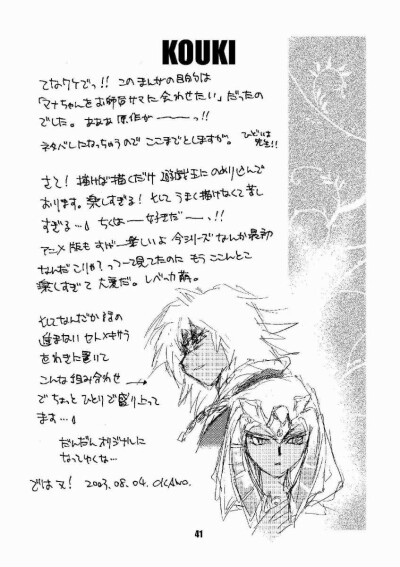 KOUKI
てなワケでっ!! このまんがの目的は
「マナちゃんをお師匠サマに会わせたい」だったの
でした。あああ 原作が ――っ!!
ネタバレになっちゃうので ここまでとしますが。ひどいよ
先生!!
さて! 描けば描くだけ 遊戯王に のめり込んで
おります。楽しすぎる! そして うまく描けなくて 苦し
すぎる…。ちくしょー 好きだ――っ!!
アニメ版も すげー楽しいよ 今シリーズ なんか最初
なんだこりゃ? っつって見てたのに もう ここんとこ
楽しすぎて 大変だ。レベッカ萌。
そしてなんだか
進まない セト×キサラ
をわきに置いて
こんな組み合わせ
で ちょっと ひとりで盛り上って
ます…。
だんだんオリジナルに
なってゆくな…
ではまた! 2003.08.04.
41